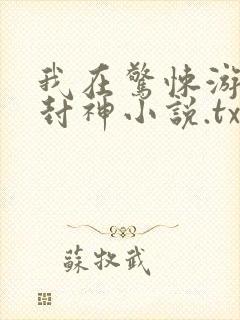 我在驚悚游
封神小說.tx
蘇牧武